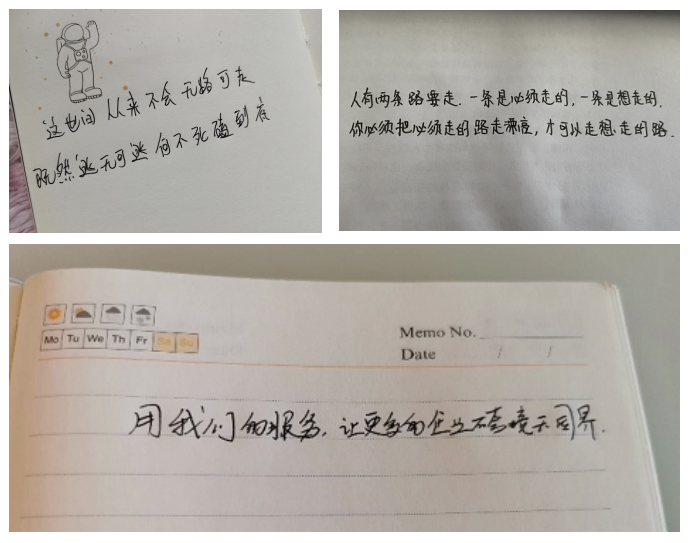 这世间 从来不会无路可走
既然逃无可逃 何不死磕到底
人有两条路要走.一条是必须走的,一条是想走的.
你必须把必须走的路走漂亮,才可以走想走的路.
Memo No.
Mo Tu We Th Fr Sa Su
Date / /
用我们的服务,让更多的企业